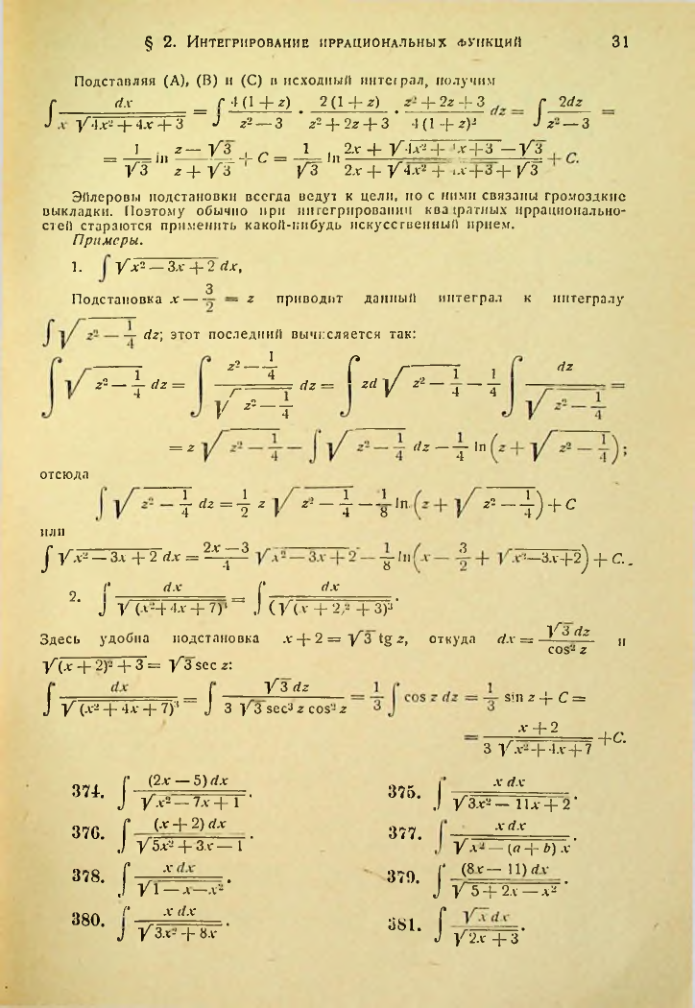 § 2. Интегрирование иррациональных функций 31
Подставляя (A), (B) и (C) в исходный интеграл, получим
∫ dx / (x √(4x² + 4x + 3)) = ∫ 4(1 + z) / (z² — 3) · 2(1 + z) / (z² + 2z + 3) · (z² + 2z + 3) / (4(1 + z)²) dz = ∫ 2dz / (z² — 3) =
= 1/√3 ln (z — √3) / (z + √3) + C = 1/√3 ln (2x + √(4x² + 4x + 3) — √3) / (2x + √(4x² + 4x + 3) + √3) + C.
Эйлеровы подстановки всегда ведут к цели, но с ними связаны громоздкие
выкладки. Поэтому обычно при интегрировании квадратных иррационально-
стей стараются применить какой-нибудь искусственный прием.
Примеры.
1. ∫ √(x² — 3x + 2) dx,
Подстановка x — 3/2 = z приводит данный интеграл к интегралу
∫ √(z² — 1/4) dz; этот последний вычисляется так:
∫ √(z² — 1/4) dz = ∫ (z² — 1/4) / √(z² — 1/4) dz = ∫ zd √(z² — 1/4) — 1/4 ∫ dz / √(z² — 1/4) =
= z √(z² — 1/4) — ∫ √(z² — 1/4) dz — 1/4 ln (z + √(z² — 1/4));
отсюда
∫ √(z² — 1/4) dz = 1/2 z √(z² — 1/4) — 1/8 ln (z + √(z² — 1/4)) + C
или
∫ √(x² — 3x + 2) dx = (2x — 3)/4 √(x² — 3x + 2) — 1/8 ln (x — 3/2 + √(x² — 3x + 2)) + C.
2. ∫ dx / √(x² + 4x + 7)³ = ∫ dx / (√((x + 2)² + 3))³.
Здесь удобна подстановка x + 2 = √3 tg z, откуда dx = √3 dz / cos² z и
√((x + 2)² + 3) = √3 sec z:
∫ dx / √(x² + 4x + 7)³ = ∫ √3 dz / (3 √3 sec³ z cos² z) = 1/3 ∫ cos z dz = 1/3 sin z + C =
= (x + 2) / (3 √(x² + 4x + 7)) + C.
374. ∫ (2x — 5) dx / √(x² — 7x + 1). 375. ∫ x dx / √(3x² — 11x + 2).
376. ∫ (x + 2) dx / √(5x² + 3x — 1). 377. ∫ x dx / √(x² — (a + b) x).
378. ∫ x dx / √(1 — x — x²). 379. ∫ (8x — 11) dx / √(5 + 2x — x²).
380. ∫ x dx / √(3x² + 8x). 381. ∫ √x dx / √(2x + 3).